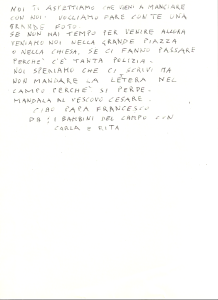 NOI TI ASPETTIAMO CHE VIENI A MANGIARE
CON NOI. VOGLIAMO FARE CON TE UNA
GRANDE FOTO.
SE NON HAI TEMPO PER VENIRE ALLORA
VENIAMO NOI NELLA GRANDE PIAZZA
O NELLA CHIESA, SE CI FANNO PASSARE
PERCHÉ C'È TANTA POLIZIA.
NOI SPERIAMO CHE CI SCRIVI MA
NON MANDARE LA LETERA NEL
CAMPO PERCHÉ SI PERDE.
MANDALA AL VESCOVO CESARE.
CIAO PAPA FRANCESCO
DA I BAMBINI DEL CAMPO CON
CARLA E RITA